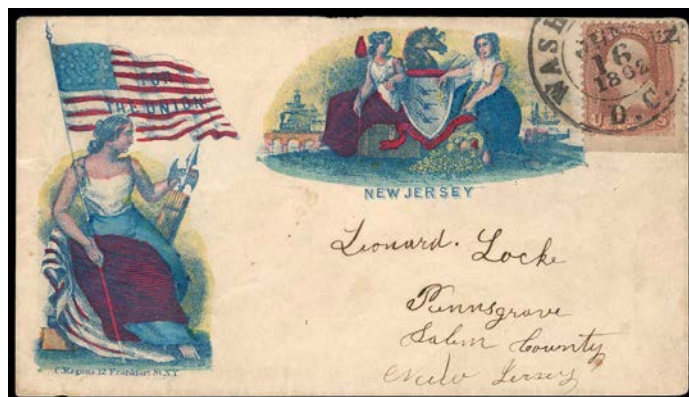 FOR
THE UNION
NEW JERSEY
WASH
1862
D.C.
U S
Leonard. Locke
Pennsgrove
Salem County
New Jersey
C. Magnus 12 Frankfort St. N.Y.